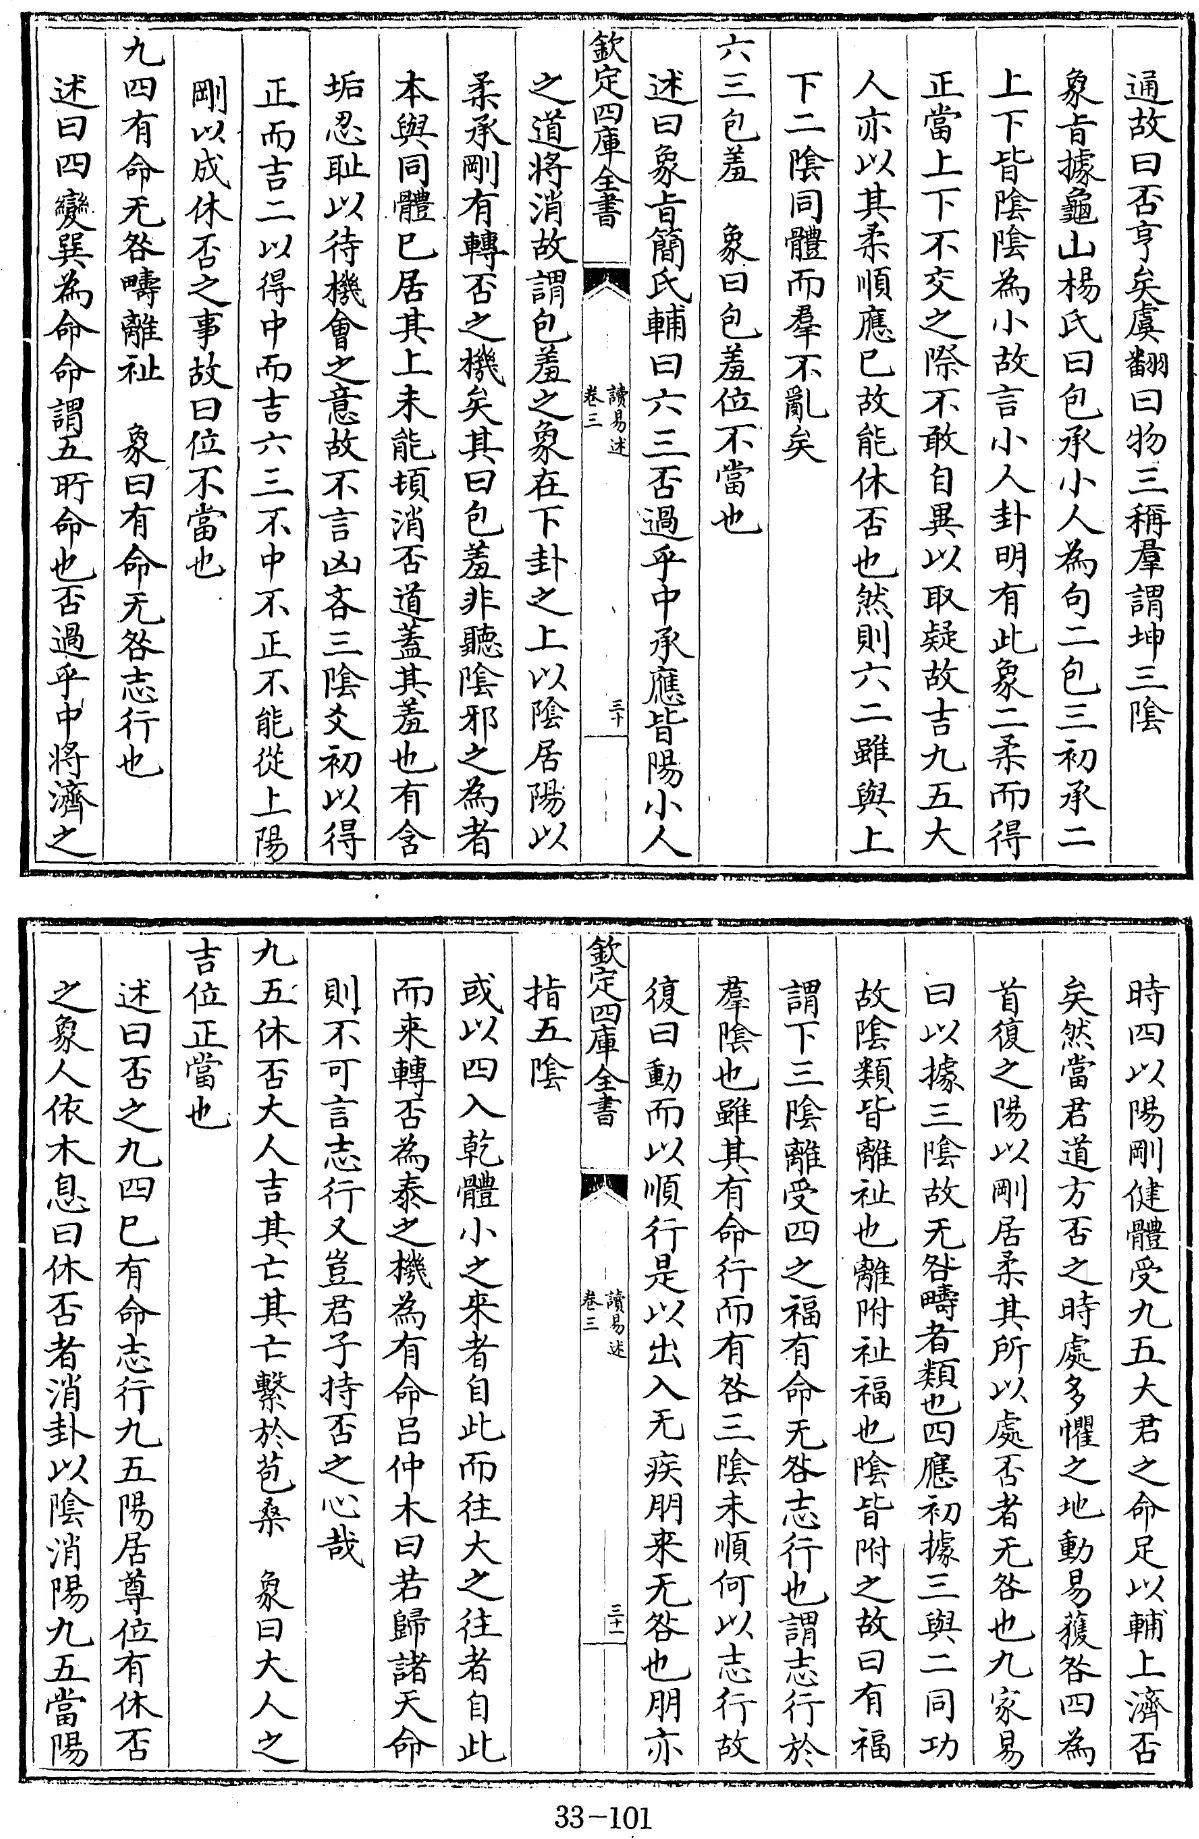 通故曰否亨矣虞翻曰物三稱羣謂坤三陰
象㫖據龜山楊氏曰包承小人為句二包三初承二
上下皆陰陰為小故言小人卦明有此象二柔而得
正當上下不交之際不敢自異以取疑故吉九五大
人亦以其柔順應已故能休否也然則六二雖與上
下二陰同體而羣不亂矣
六三包羞　象曰包羞位不當也
述曰象㫖簡氏輔曰六三否過乎中承應皆陽小人
欽定四庫全書
讀易述
卷三
三十
之道將消故謂包羞之象在下卦之上以陰居陽以
柔承剛有轉否之機矣其曰包羞非聽陰邪之為者
本與同體已居其上未能頓消否道蓋其羞也有含
垢忍耻以待機會之意故不言凶吝三陰爻初以得
正而吉二以得中而吉六三不中不正不能從上陽
剛以成休否之事故曰位不當也
九四有命无咎疇離祉　象曰有命无咎志行也
述曰四變巽為命命謂五所命也否過乎中將濟之
時四以陽剛健體受九五大君之命足以輔上濟否
矣然當君道方否之時處多懼之地動易獲咎四為
首復之陽以剛居柔其所以處否者无咎也九家易
曰以據三陰故无咎疇者類也四應初據三與二同功
故陰類皆離祉也離附祉福也陰皆附之故曰有福
謂下三陰離受四之福有命无咎志行也謂志行於
羣陰也雖其有命行而有咎三陰未順何以志行故
復曰動而以順行是以出入无疾朋来无咎也朋亦
欽定四庫全書
讀易述
卷三
三十一
指五陰
或以四入乾體小之来者自此而往大之往者自此
而来轉否為泰之機為有命吕仲木曰若歸諸天命
則不可言志行又豈君子持否之心哉
九五休否大人吉其亡其亡繫於苞桑　象曰大人之
吉位正當也
述曰否之九四已有命志行九五陽居尊位有休否
之象人依木息曰休否者消卦以陰消陽九五當陽
33-101